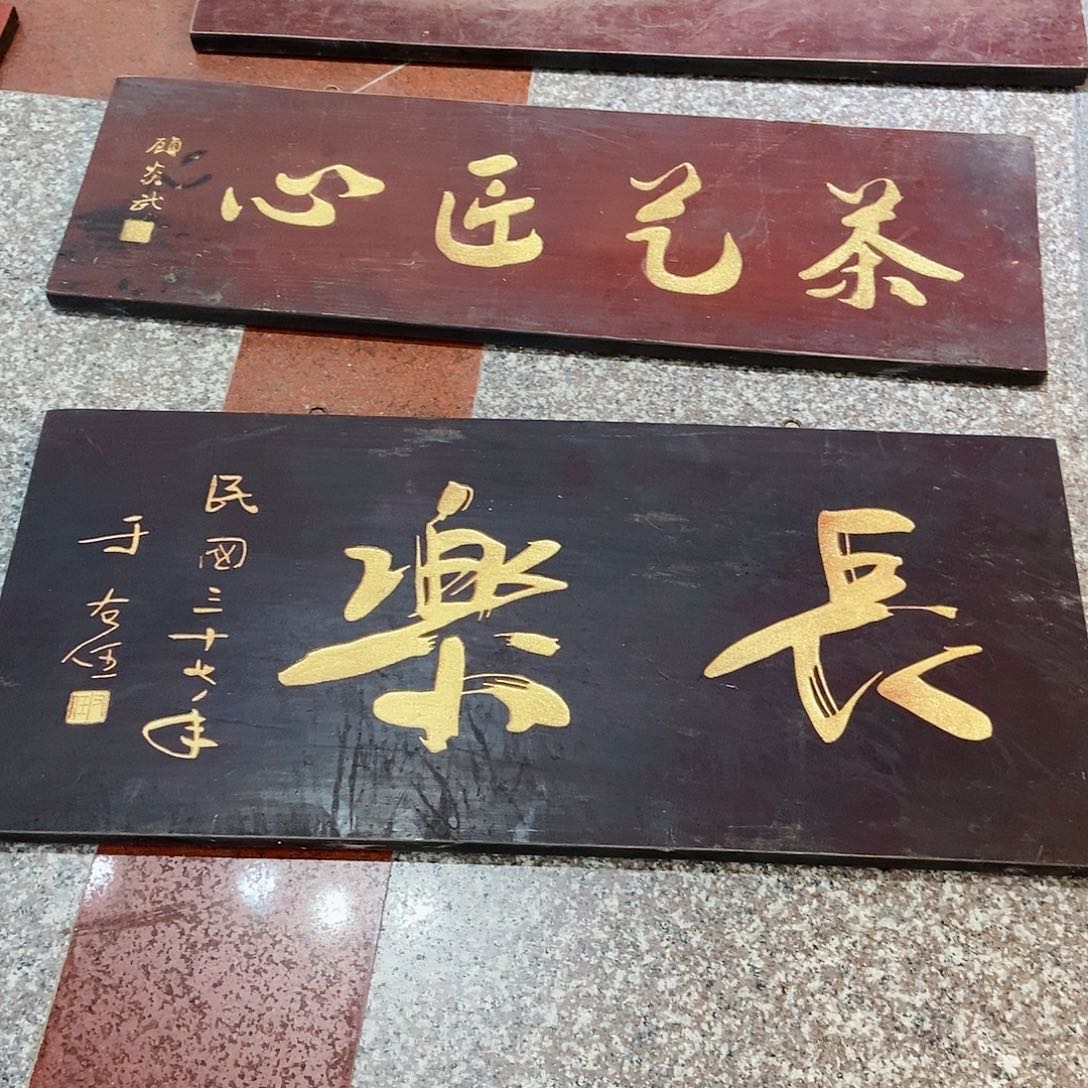 茶艺匠心
顧炎武
長樂
民國三十七年
于右任